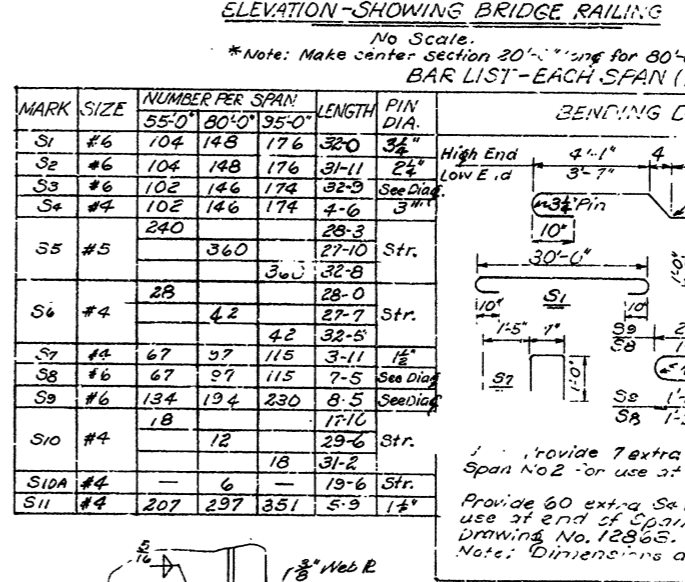 ELEVATION-SHOWING BRIDGE RAILING
No Scale.
*Note: Make center section 20'-0" long for 80'-
BAR LIST-EACH SPAN (
MARK SIZE NUMBER PER SPAN LENGTH PIN DIA.
55'-0" 80'-0" 95'-0"
S1 #6 104 148 176 32-0 3¼"
S2 #6 104 148 176 31-11 2¼"
S3 #6 102 146 174 32-9 See Diag.
S4 #4 102 146 174 4-6 3"
240 28-3
S5 #5 360 27-10 Str.
360 32-8
28 28-0
S6 #4 42 27-7 Str.
42 32-5
S7 #4 67 97 115 3-11 1½"
S8 #6 67 97 115 7-5 See Diag
S9 #6 134 194 230 8-5 See Diag
18 17-10
S10 #4 12 29-6 Str.
18 31-2
S10A #4 — 6 — 19-6 Str.
S11 #4 207 297 351 5-9 1½"
BENDING D
High End 4'-1" 4
Low End 3'-7"
3¼" Pin
10"
30'-0"
10" S1 10"
1'-5" 7" S9 2
S8 1
S7 1'-0"
S9 1'-
S8 1'-
Provide 7 extra
Span No 2 for use at
Provide 60 extra S4
use at end of Span
Drawing No. 12863.
Note: Dimensions a
5/16
3/8" Web ℄